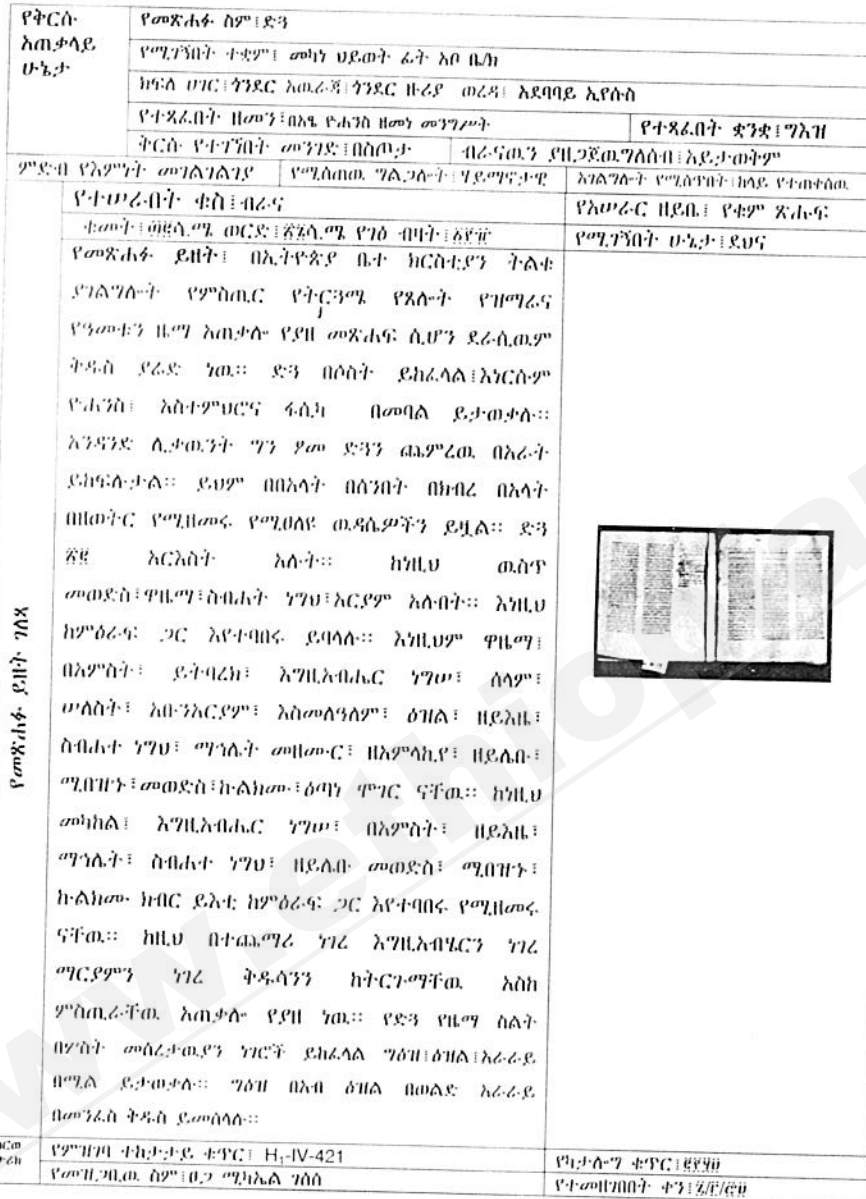 የቅርሱ አጠቃላይ ሁኔታ
የመጽሐፉ ስም፤ድጓ
የሚገኝበት ተቋም፤ መካነ ህይወት ፊት አቦ ቤ/ክ
ክፍለ ሀገር፤ጎንደር አዉራጃ፤ጎንደር ዙሪያ ወረዳ፤ አደባባይ ኢየሱስ
የተጻፈበት ዘመን፤በአፄ ዮሐንስ ዘመነ መንግሥት የተጻፈበት ቋንቋ፤ግእዝ
ቅርሱ የተገኘበት መንገድ፤በስጦታ ብራናዉን ያዘጋጀዉ ግለሰብ፤አይታወቅም
ምድብ የእምነት መገልገልገያ የሚሰጠዉ ግልጋሎት፤ሃይማኖታዊ አገልግሎት የሚሰጥበት፤ከላይ የተጠቀሰዉ
የተሠራበት ቁስ፤ብራና የአሠራር ዘይቤ፤ የቁም ጽሑፍ
ቁመት፤ ሳ.ሜ ወርድ፤ ሳ.ሜ የገፅ ብዛት፤ የሚገኝበት ሁኔታ፤ደህና
የመጽሐፉ ይዘት ገለጻ
የመጽሐፉ ይዘት፤ በኢትዮጵያ ቤተ ክርስቲያን ትልቁ
ያገልግሎት የምስጢር የትርጓሜ የጸሎት የዝማሬና
የዓመቱን ዜማ አጠቃሎ የያዘ መጽሐፍ ሲሆን ደራሲዉም
ቅዱስ ያሬድ ነዉ። ድጓ በሶስት ይከፈላል፤እነርሱም
ዮሐንስ፤ አስተምህሮና ፋሲካ በመባል ይታወቃሉ።
አንዳንድ ሊታዉንት ግን ፆመ ድጓን ጨምረዉ በአራት
ይከፍሉታል። ይህም በበአላት በሰንበት በክብረ በአላት
በዘወትር የሚዘመሩ የሚሀለዩ ዉዳሴዎችን ይዟል። ድጓ
አርእስት አሉት። ከነዚህ ዉስጥ
መወድስ፤ዋዜማ፤ስብሐት ነግህ፤አርያም አሉበት። እነዚህ
ከምዕራፍ ጋር እየተባበሩ ይባላሉ። እነዚህም ዋዜማ፤
በአምስት፤ ይትባረክ፤ እግዚአብሔር ነግሠ፤ ሰላም፤
ሠለስት፤ አቡንአርያም፤ እስመለዓለም፤ ዕዝል፤ ዘይእዜ፤
ስብሐተ ነግህ፤ ማኅሌት መዘሙር፤ ዘአምላኪየ፤ ዘይሌቡ፤
ሚበዝኁ፤መወድስ፤ኩልክሙ፤ዕጣነ ሞገር ናቸዉ። ከነዚህ
መካከል፤ እግዚአብሔር ነግሠ፤ በአምስት፤ ዘይእዜ፤
ማኅሌት፤ ስብሐተ ነግህ፤ ዘይሌቡ መወድስ፤ ሚበዝኁ፤
ኩልክሙ ክብር ይእቲ ከምዕራፍ ጋር እየተባበሩ የሚዘመሩ
ናቸዉ። ከዚህ በተጨማሪ ነገረ እግዚአብሄርን ነገረ
ማርያምን ነገረ ቅዱሳንን ከትርጉማቸዉ እስከ
ምስጢራቸዉ አጠቃሎ የያዘ ነዉ። የድጓ የዜማ ስልት
በሦስት መሰረታዉያን ነገሮች ይከፈላል ግዕዝ፤ዕዝል፤አራራይ
በሚል ይታወቃሉ። ግዕዝ በአብ ዕዝል በወልድ አራራይ
በመንፈስ ቅዱስ ይመሰላሉ።
የምዝገባ ተከታታይ ቁጥር፤ H₁-IV-421 የካታሎግ ቁጥር፤
የመዝጋቢዉ ስም፤ፀጋ ሚካኤል ገሰሰ የተመዘገበበት ቀን፤
www.ethiopia